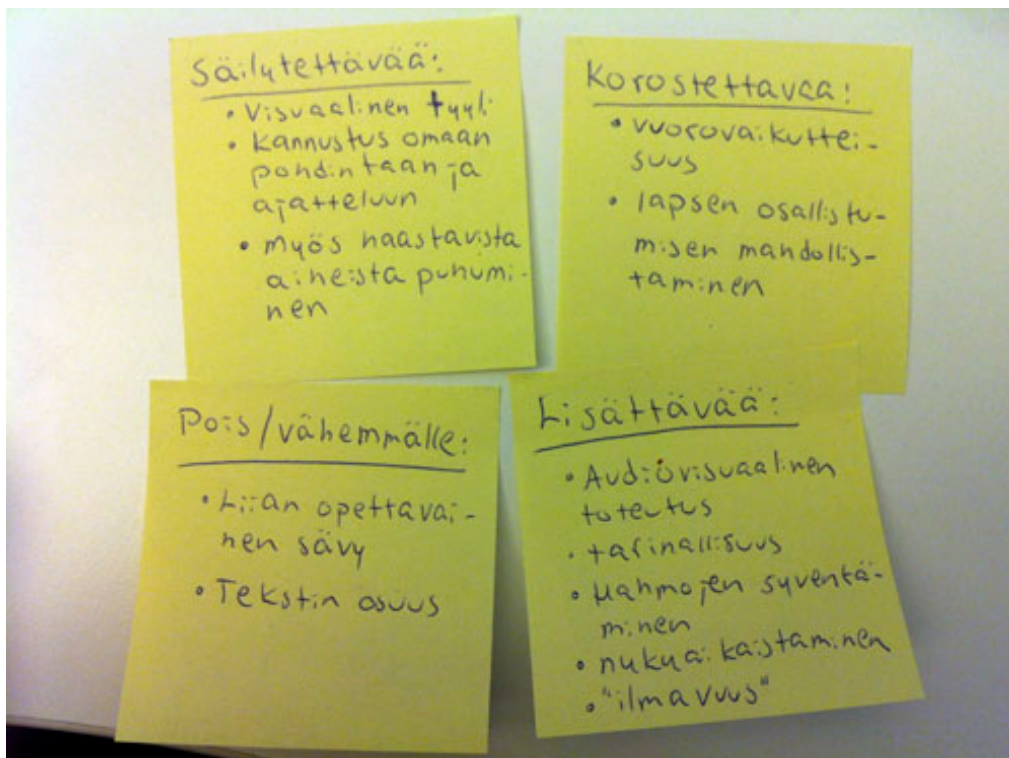 Säilytettävää:
• Visuaalinen tyyli
• Kannustus omaan
pohdintaan ja
ajatteluun
• myös haastavista
aiheista puhumi-
nen
Korostettavaa:
• vuorovaikuttei-
suus
• lapsen osallistu-
misen mahdollis-
taminen
Pois/vähemmälle:
• Liian opettavai-
nen sävy
• Tekstin osuus
Lisättävää:
• Audiovisuaalinen
toteutus
• tarinallisuus
• Hahmojen syventä-
minen
• nykyaikaistaminen
• "ilmavuus"